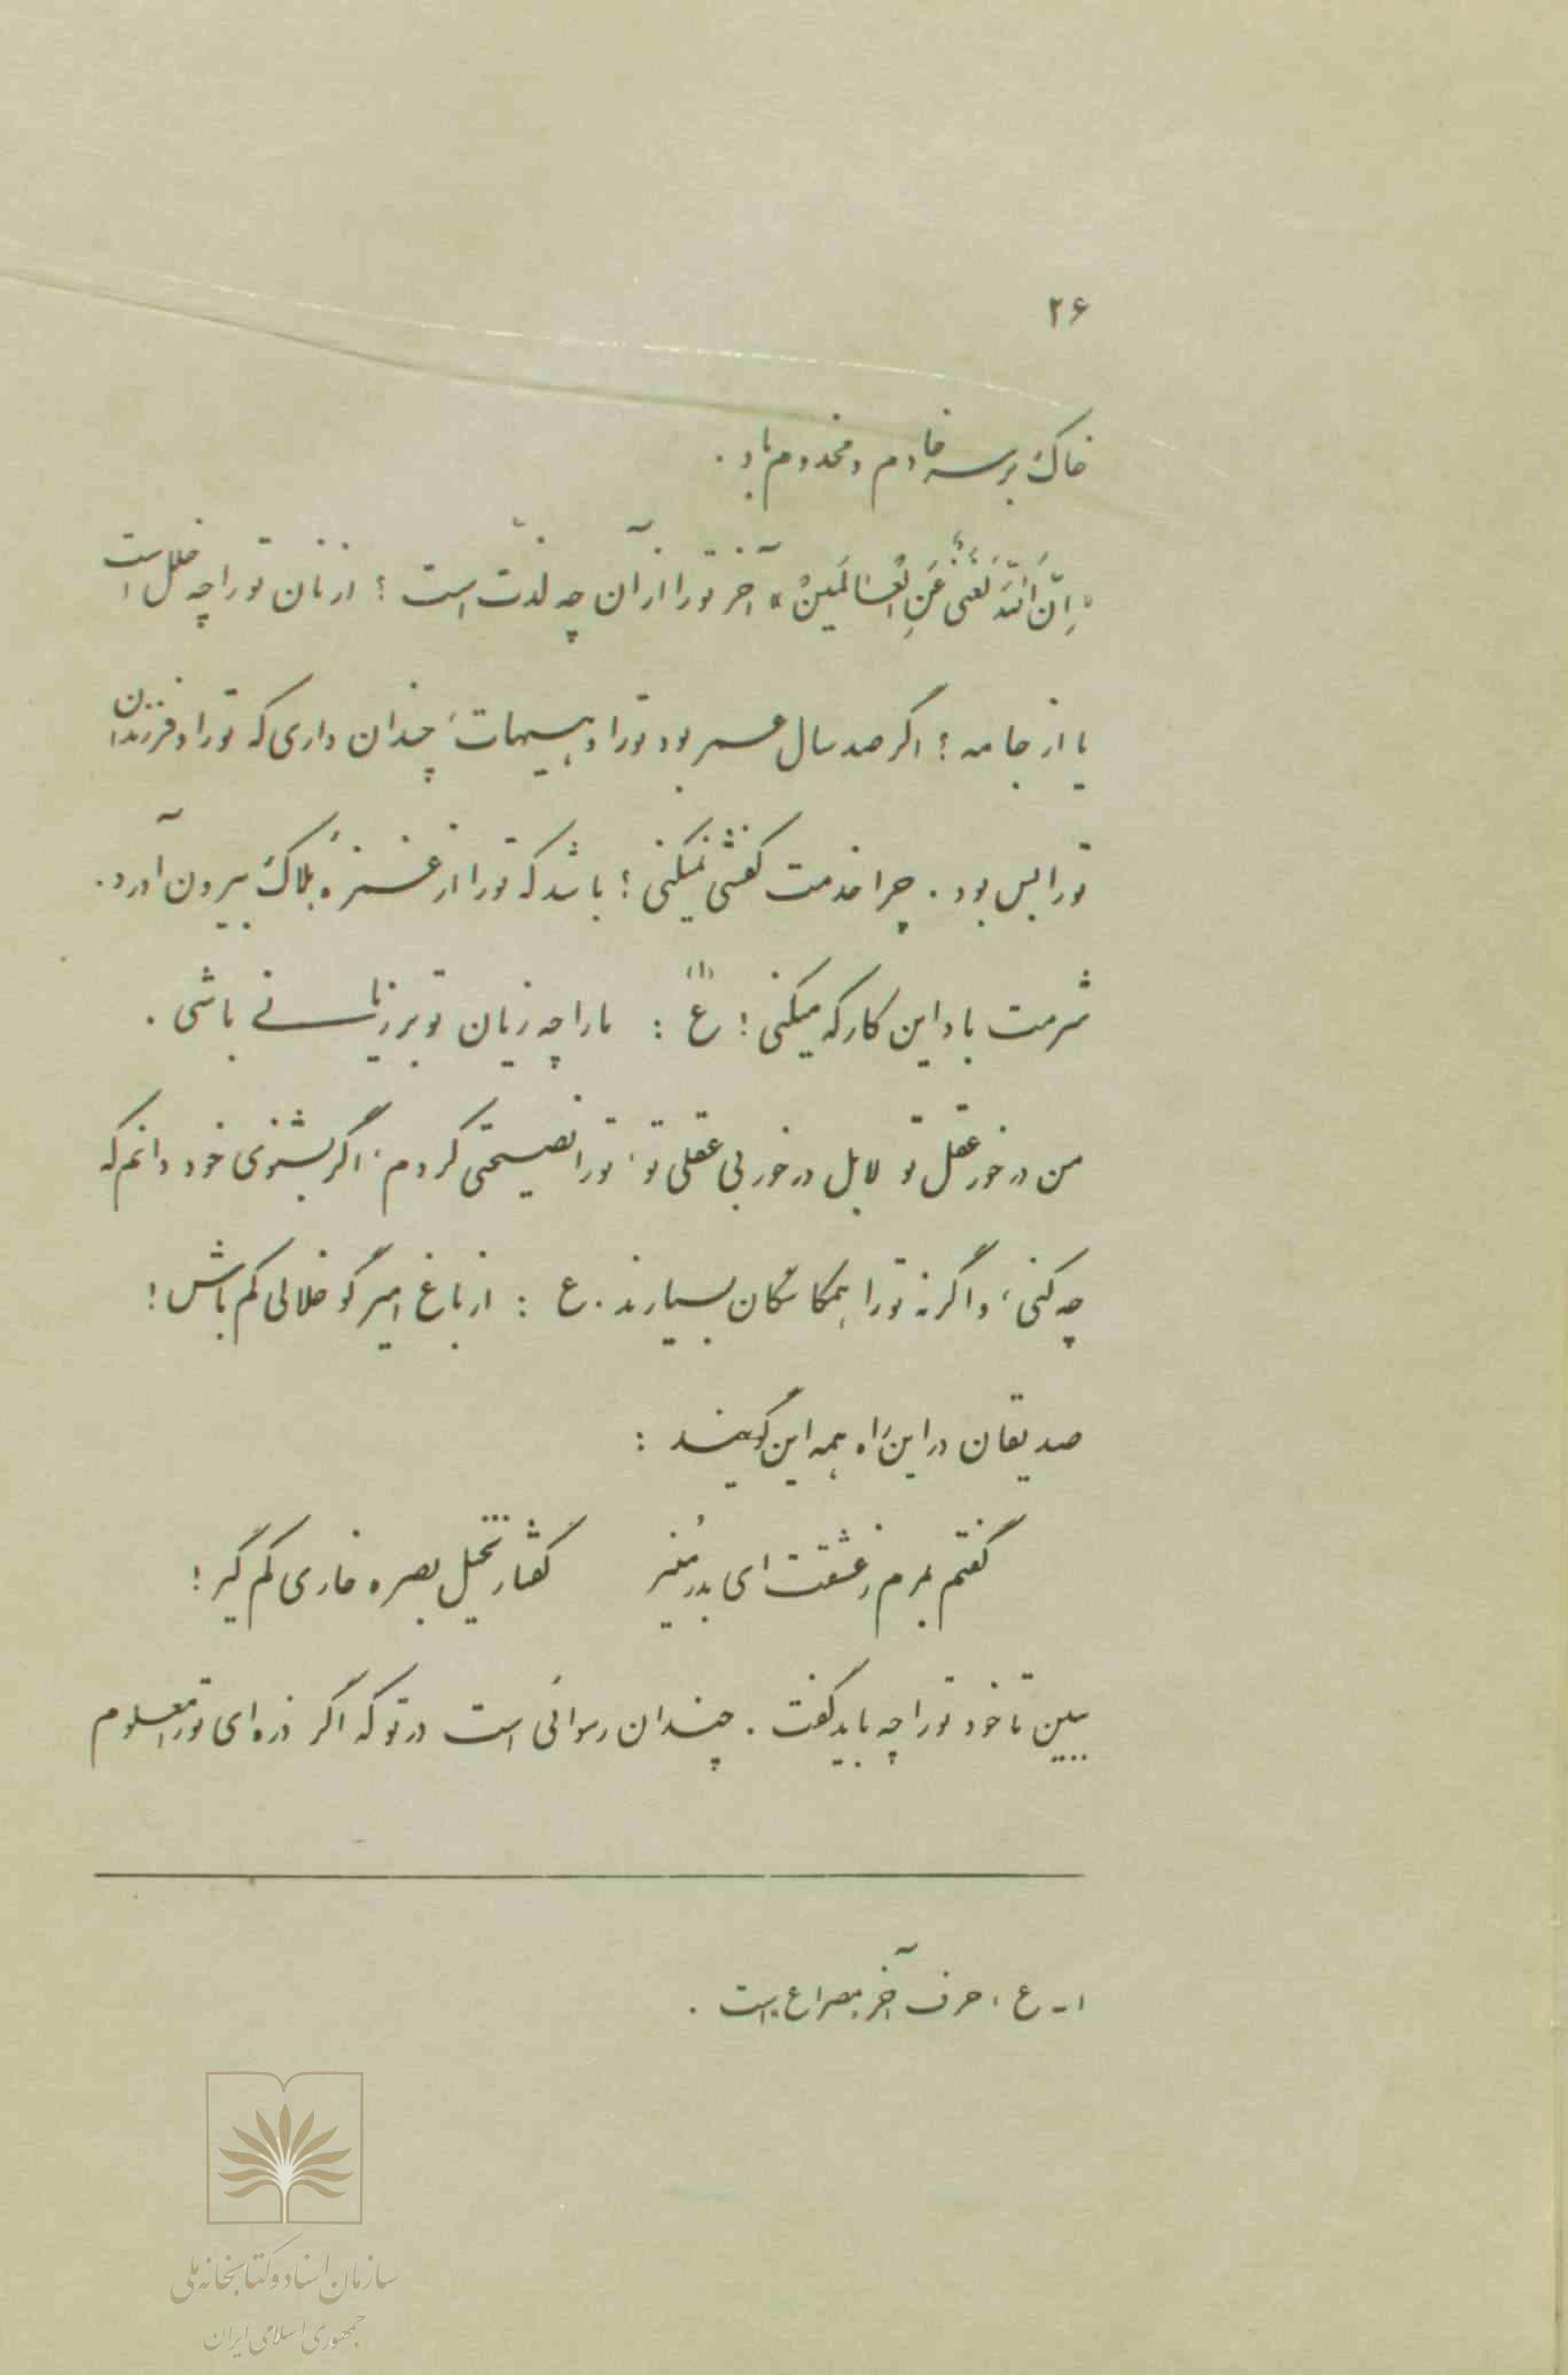 ۲۶
خاک بر سر خادم و مخدوم باد .
«اِنَّ اللّٰهَ لَغَنِیٌّ عَنِ الْعٰالَمینْ» آخر تو را از آن چه لذّت است ؟ از نان تو را چه خلل است
یا از جامه ؟ اگر صد سال عمر بود تو را و هیهات، چندان داری که تو را و فرزندان
تو را بس بود . چرا خدمت کفشی نمیکنی ؟ باشد که تو را از غمزهٔ هلاک بیرون آورد .
شرمت باد این کار که میکنی ! ع (۱) : ما را چه زیان تو بر زیانی باشی .
من در خور عقل تو لابل در خور بی عقلی تو، تو را نصیحتی کردم، اگر بشنوی خود دانم که
چه کنی، و اگر نه تو را همکاسگان بسیارند . ع : از باغ امیر گو خلالی کم باش !
صدیقان در این راه همه این گویند :
گفتم بمرم ز عشقت ای بدر مُنیر گفتار نخیل بصره خاری کم گیر !
ببین تا خود تو را چه باید گفت . چندان رسوائی است در تو که اگر ذره ای تو را معلوم
۱- ع ، حرف آخر مصراع است .
سازمان اسناد و کتابخانه ملی
جمهوری اسلامی ایران